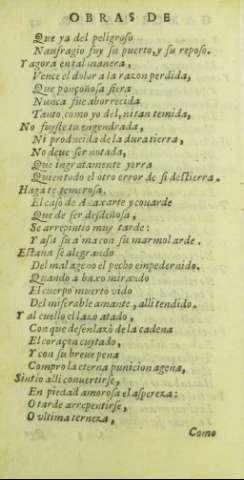 OBRAS DE
Que ya del peligroso
Naufragio fuy su puerto, y su reposo.
Y agora en tal manera,
Vence el dolor a la razon perdida,
Que ponçoñosa fiera
Nunca fue aborrecida
Tanto como yo del, ni tan temida,
No fuyste tu engendrada,
Ni producida de la dura tierra,
No deue ser notada,
Que ingratamente yerra
Quien todo el otro error de si destierra.
Hagate temerosa
El caso de Anaxarte y couarde
Que de ser desdeñosa,
Se arrepintio muy tarde:
Y assi su alma con su marmol arde.
Estaua se alegrando
Del mal ageno el pecho empedernido.
Quando a baxo mirando
El cuerpo muerto vido
Del miserable amante, alli tendido.
Y al cuello el lazo atado,
Con que desenlazò de la cadena
El coraçon cuytado,
Y con su breue pena
Compro la eterna punicion agena,
Sintio alli conuertirse,
En piedad amorosa el aspereza:
O tarde arrepentirse,
O vltima terneza,
Como